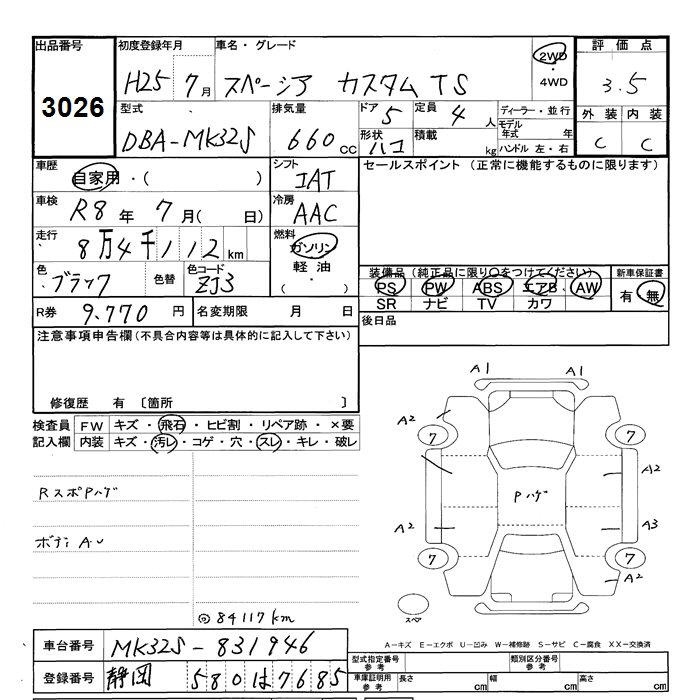 出品番号
3026
初度登録年月
H25 7月
車名・グレード
スペーシア カスタム TS
2WD
・
4WD
評価点
3.5
型式
DBA-MK32S
排気量
660cc
ドア
5
形状
ハコ
定員
4人
積載
kg
ディーラー・並行
モデル年式 年
ハンドル 左・右
外装 内装
C C
車歴
自家用・( )
シフト
IAT
セールスポイント (正常に機能するものに限ります)
車検
R8年 7月( 日)
冷房
AAC
走行
8万4千112km
燃料
ガソリン
軽油・
( )
色
ブラック
色替
色コード
ZJ3
装備品(純正品に限り○をつけてください)
PS PW ABS エアB AW
SR ナビ TV カワ
新車保証書
有・無
R券 9,770円
名変期限 月 日
後日品
注意事項申告欄(不具合内容等は具体的に記入して下さい)
修復歴 有 〔箇所 〕
検査員記入欄
FW キズ・飛石・ヒビ割・リペア跡・×要
内装 キズ・汚レ・コゲ・穴・スレ・キレ・破レ
RスポPハゲ
ボディAU
◎84117km
A1 A1
A2
7 7
A2
Pハゲ
A2 A3
7 7
A2
スペア
A-キズ E-エクボ U-凹み W-補修跡 S-サビ C-腐食 XX-交換済
車台番号 MK32S-831946
登録番号 静岡 580は7685
型式指定番号
参考
類別区分番号
参考
車庫証明用
参考
長さ cm 幅 cm 高さ cm